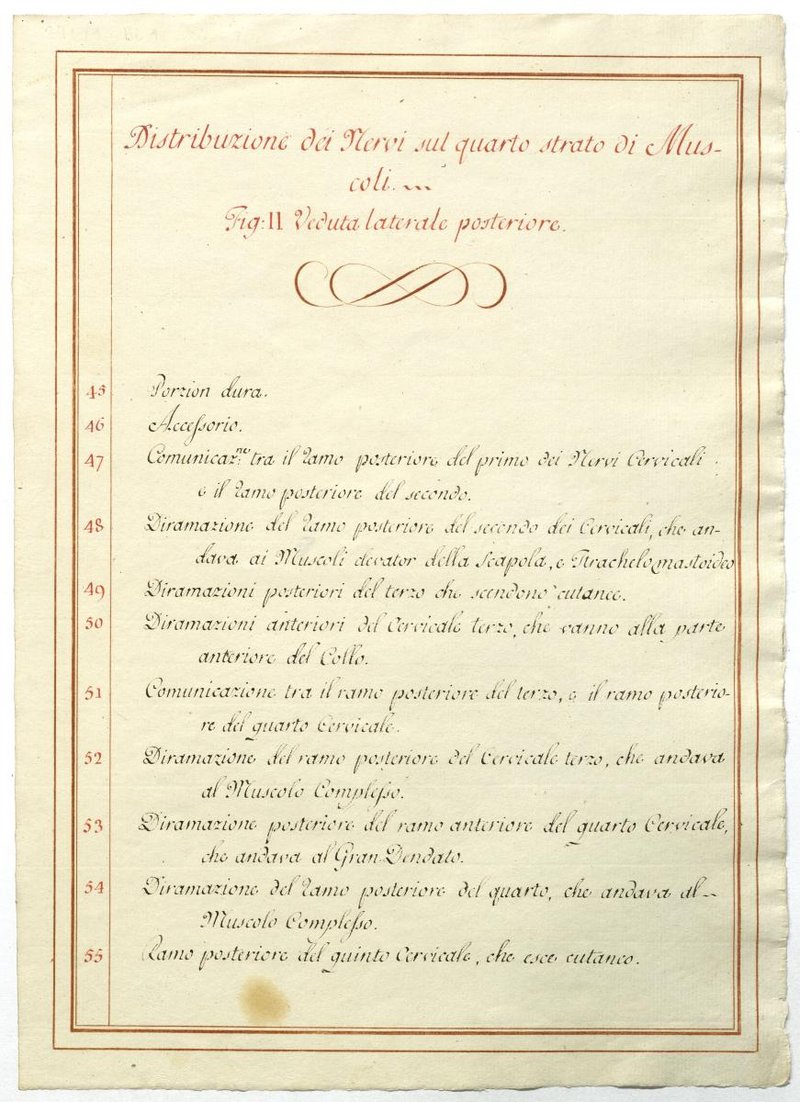 Distribuzione dei Nervi sul quarto strato di Mus-
coli.
Fig: II Veduta laterale posteriore.
45 Porzion dura.
46 Accessorio.
47 Comunicaz.ne tra il ramo posteriore del primo dei Nervi Cervicali
e il ramo posteriore del secondo.
48 Diramazione del ramo posteriore del secondo dei Cervicali, che an-
dava ai Muscoli elevator della Scapola, e Trachelomastoideo
49 Diramazioni posteriori del terzo che scendono cutanee.
50 Diramazioni anteriori del Cervicale terzo, che vanno alla parte
anteriore del Collo.
51 Comunicazione tra il ramo posteriore del terzo, e il ramo posterio-
re del quarto Cervicale.
52 Diramazione del ramo posteriore del Cervicale terzo, che andava
al Muscolo Complesso.
53 Diramazione posteriore del ramo anteriore del quarto Cervicale,
che andava al Gran Dendato.
54 Diramazione del ramo posteriore del quarto, che andava al
Muscolo Complesso.
55 Ramo posteriore del quinto Cervicale, che esce cutaneo.